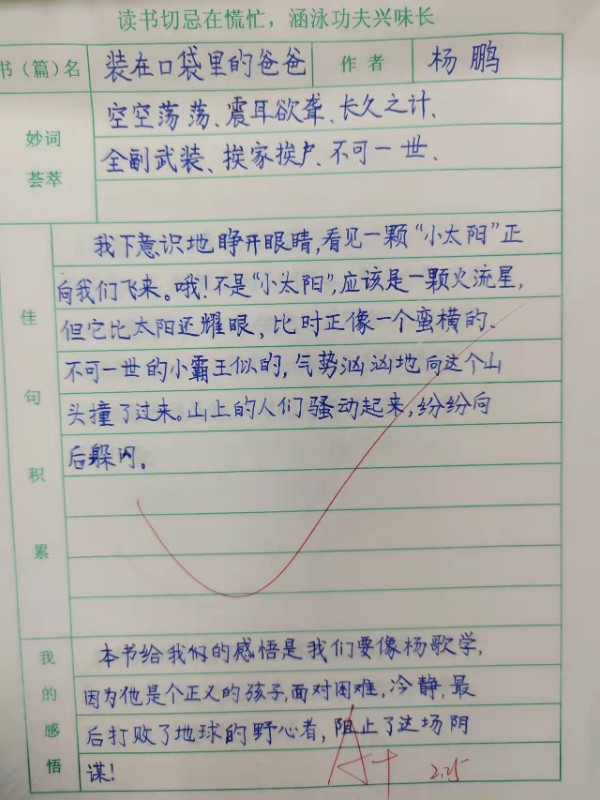 读书切忌在慌忙，涵泳功夫兴味长
书（篇）名 装在口袋里的爸爸 作者 杨鹏
妙词荟萃
空空荡荡、震耳欲聋、长久之计、
全副武装、挨家挨户、不可一世、
佳句积累
我下意识地睁开眼睛,看见一颗“小太阳”正
向我们飞来。哦!不是“小太阳”,应该是一颗火流星,
但它比太阳还耀眼,比时正像一个蛮横的、
不可一世的小霸王似的,气势汹汹地向这个山
头撞了过来。山上的人们骚动起来,纷纷向
后躲闪。
我的感悟
本节给我们的感悟是我们要像杨歌学,
因为他是个正义的孩子,面对困难,冷静,最
后打败了地球的野心者,阻止了这场阴
谋!
A+ 2.25